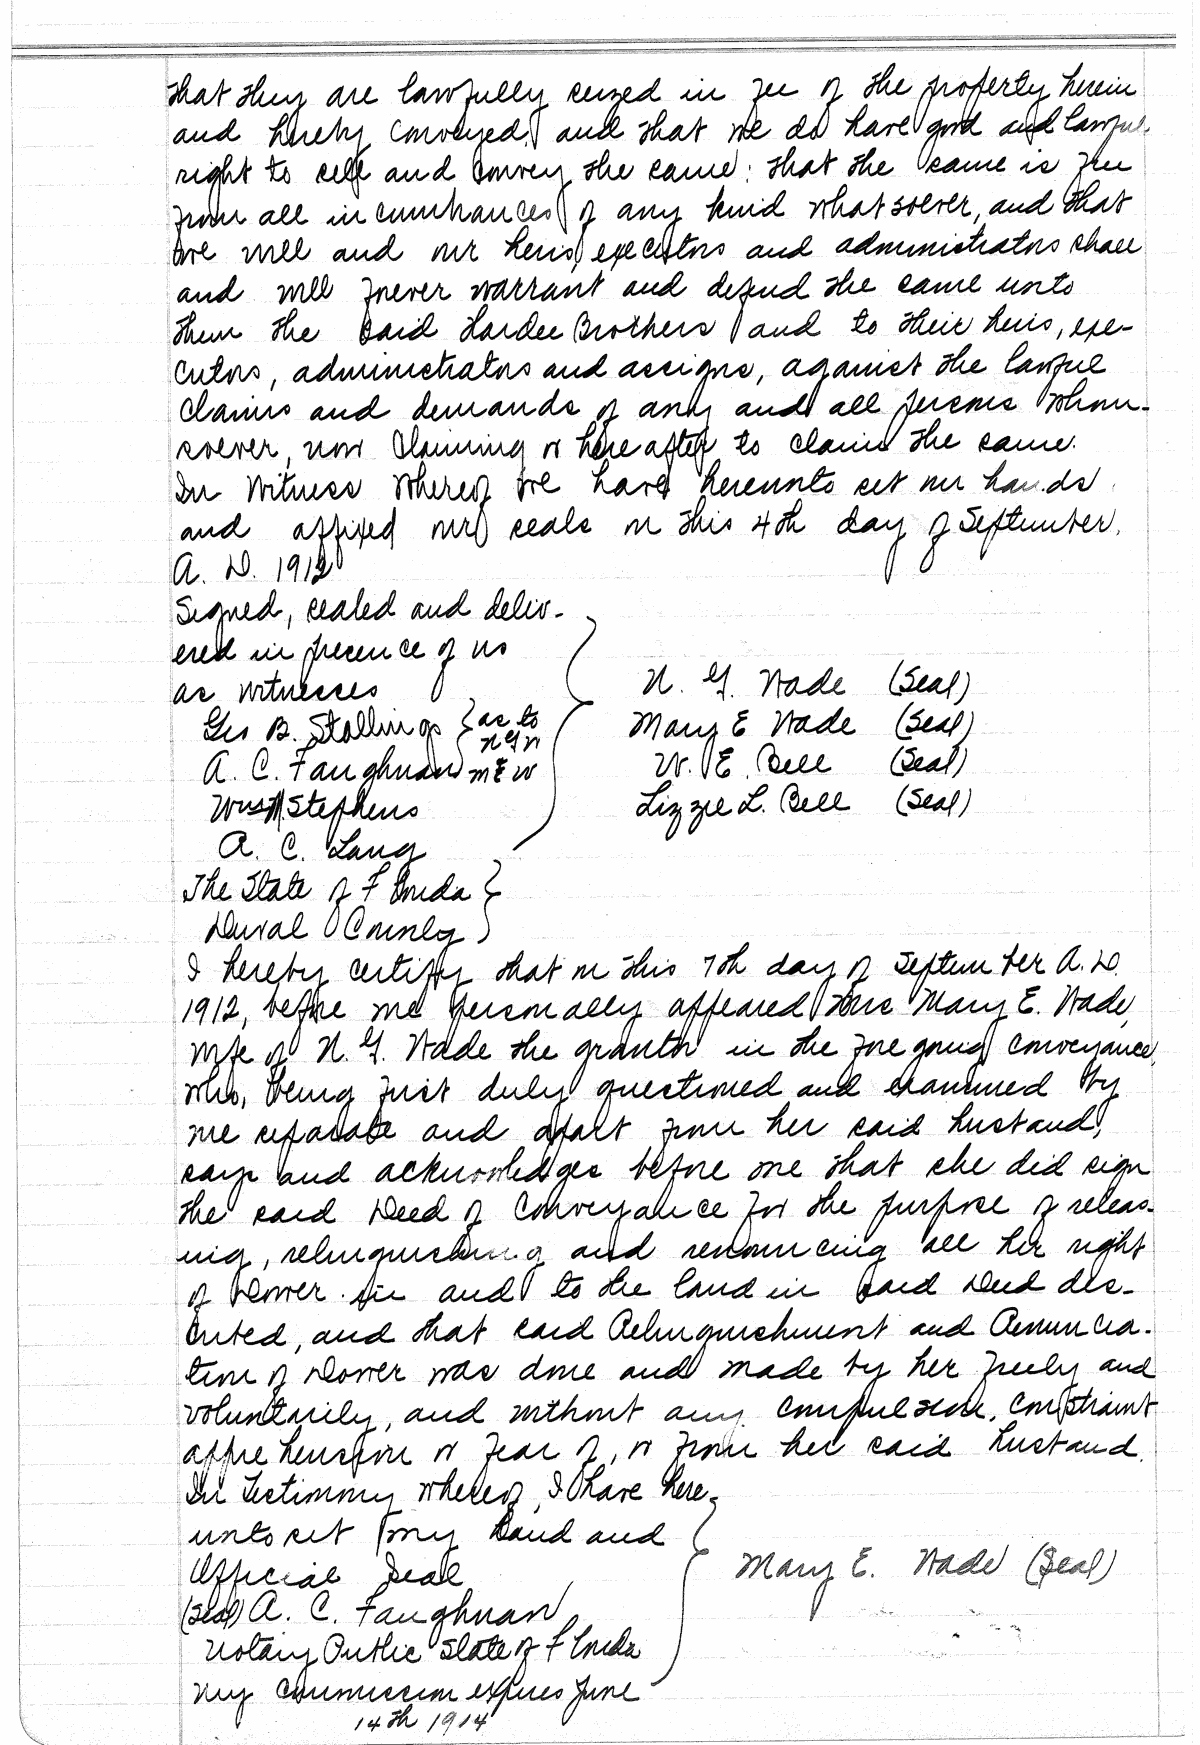 that they are lawfully seized in fee of the property herein
and hereby conveyed, and that we do have good and lawful
right to sell and convey the same: that the same is free
from all incumbrances of any kind whatsoever, and that
we will and our heirs, executors and administrators shall
and will forever warrant and defend the same unto
them the said Hardee Brothers and to their heirs, exe-
cutors, administrators and assigns, against the lawful
claims and demands of any and all persons whom-
soever, now claiming or hereafter to claim the same.
In Witness Whereof we have hereunto set our hands
and affixed our seals on this 4th day of September,
A. D. 1912
Signed, sealed and deliv-
ered in presence of us
as witnesses
N. G. Wade (Seal)
Geo B. Stallings } as to
N G W
Mary E Wade (Seal)
A. C. Faughnan M E W
W. E. Bell (Seal)
Wm Stephens
Lizzie L. Bell (Seal)
A. C. Lang
The State of Florida }
Duval County )
I hereby certify that on this 7th day of September A. D.
1912, before me personally appeared Mrs Mary E. Wade,
wife of N. G. Wade the grantor in the foregoing conveyance,
who, being first duly questioned and examined by
me separate and apart from her said husband,
says and acknowledges before me that she did sign
the said Deed of Conveyance for the purpose of releas-
ing, relinquishing and renouncing all her right
of Dower in and to the land in said Deed des-
cribed, and that said Relinquishment and Renuncia-
tion of Dower was done and made by her freely and
voluntarily, and without any compulsion, constraint
apprehension or fear of, or from her said husband.
In Testimony whereof, I have here-
unto set my hand and
Official Seal
Mary E. Wade (Seal)
(Seal) A. C. Faughnan
Notary Public State of Florida
My commission expires June
14th 1914